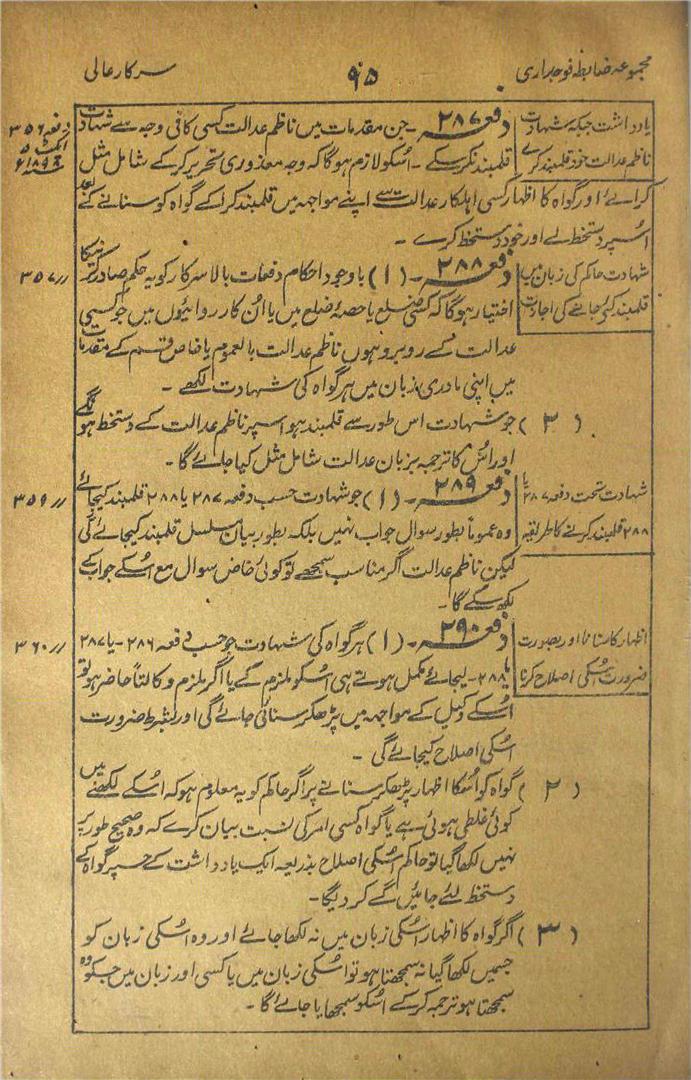 مجموعہ ضابطہ فوجداری
۹۵
سرکار عالی
یادداشت جبکہ شہادت
ناظم عدالت خود قلمبند نکرے
دفعہ ۲۸۷۔ جن مقدمات میں ناظم عدالت کسی کافی وجہ سے شہادت
قلمبند نکر سکے۔ اُسکو لازم ہوگا کہ وجہ معذوری تحریر کرکے شامل مثل
کرائے اور گواہ کا اظہار کسی اہلکار عدالت سے اپنے مواجہہ میں قلمبند کراکے گواہ کو سنانے کے بعد
اُسپر دستخط لے اور خود دستخط کرے۔
دفعہ ۳۵۶
ایکٹ ۵
سنہ ۱۸۹۸ء
شہادت حاکم کی زبان میں
قلمبند کئے جانے کی اجازت
دفعہ ۲۸۸۔ (۱) باوجود احکام دفعات بالا سرکار کو یہ حکم صادر کرنیکا
اختیار ہوگا کہ کسی ضلع یا حصۂ ضلع میں یا اُن کارروائیوں میں جو کسی
عدالت کے روبرو ہوں ناظم عدالت بالعموم یا خاص قسم کے مقدمات
میں اپنی مادری زبان میں ہر گواہ کی شہادت لکھے۔
(۲) جو شہادت اس طور سے قلمبند ہو اسپر ناظم عدالت کے دستخط ہونگے
اور اُس کا ترجمہ بزبان عدالت شامل مثل کیا جائے گا۔
〃 ۳۵۷
شہادت تحت دفعہ ۲۸۷ یا
۲۸۸ قلمبند کرنے کا طریقہ
دفعہ ۲۸۹۔ (۱) جو شہادت حسب دفعہ ۲۸۷ یا ۲۸۸ قلمبند کیجائے
وہ عموماً بطور سوال جواب نہیں بلکہ بطور بیان مسلسل قلمبند کیجائے گی
لیکن ناظم عدالت اگر مناسب سمجھے تو کوئی خاص سوال مع اُسکے جواب کے
لکھ سکے گا۔
〃 ۳۵۹
اظہار کا سنانا اور بصورت
ضرورت اُسکی اصلاح کرنا
دفعہ ۲۹۰۔ (۱) ہر گواہ کی شہادت جو حسب دفعہ ۲۸۶۔ یا ۲۸۷
یا ۲۸۸۔ لیجائے مکمل ہوتے ہی اُسکو ملزم کے یا اگر ملزم وکالتاً حاضر ہو تو
اُسکے وکیل کے مواجہہ میں پڑھکر سنائی جائے گی اور بشرط ضرورت
اُسکی اصلاح کیجائے گی۔
〃 ۳۶۰
(۲) گواہ کو اُسکا اظہار پڑھکر سنانے پر اگر حاکم کو یہ معلوم ہو کہ اُسکے لکھنے میں
کوئی غلطی ہوئی ہے یا گواہ کسی امر کی نسبت بیان کرے کہ وہ صحیح طور پر
نہیں لکھا گیا تو حاکم اُسکی اصلاح بذریعہ ایک یادداشت کے جسپر گواہ کے
دستخط لئے جائیں گے کر دیگا۔
(۳) اگر گواہ کا اظہار اُسکی زبان میں نہ لکھا جائے اور وہ اُسکی زبان کو
جسمیں لکھا گیا نہ سمجھتا ہو تو اُسکی زبان میں یا کسی اور زبان میں جسکو وہ
سمجھتا ہو ترجمہ کرکے اُسکو سمجھایا جائے گا۔